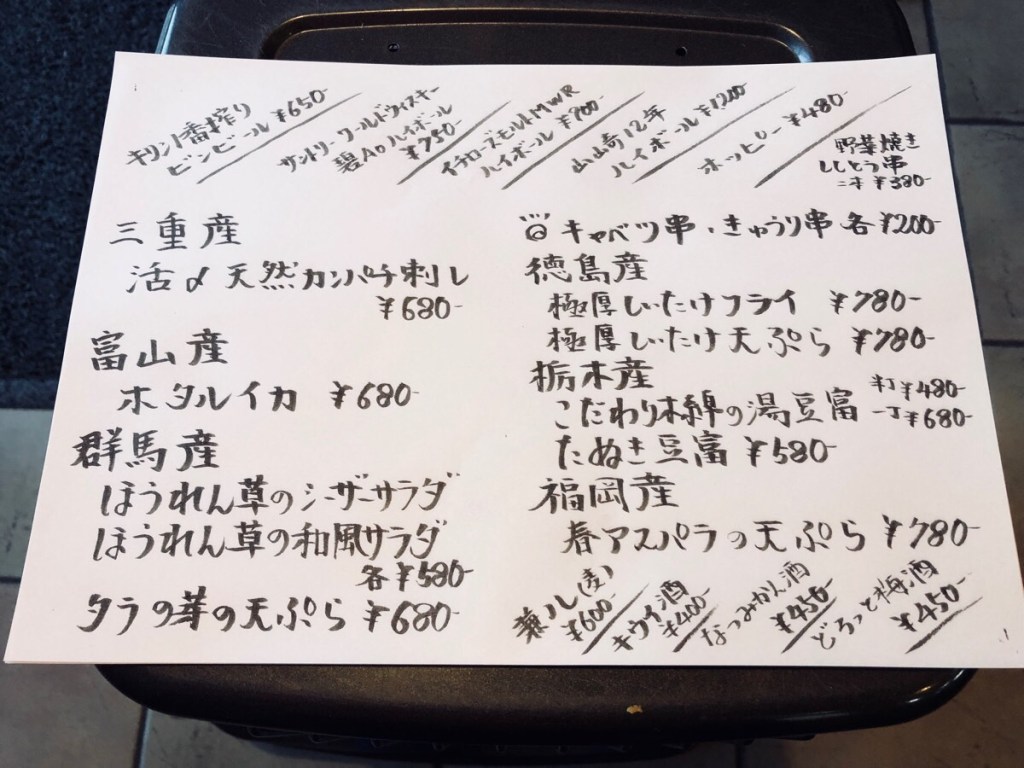 キリン一番搾り
ビンビール ¥650-
サントリーワールドウィスキー
碧Aoハイボール
¥750-
イチローズモルトMWR
ハイボール ¥900-
山崎12年
ハイボール ¥1200-
ホッピー ¥480-
野菜焼き
ししとう串
二本 ¥380-
三重産
活〆天然カンパチ刺し
¥680-
富山産
ホタルイカ ¥680-
群馬産
ほうれん草のシーザーサラダ
ほうれん草の和風サラダ
各¥580-
タラの芽の天ぷら ¥680-
キャベツ串・きゅうり串 各¥200-
徳島産
極厚しいたけフライ ¥780-
極厚しいたけ天ぷら ¥780-
栃木産
こだわり木綿の湯豆富
半丁¥480-
一丁¥680-
たぬき豆富 ¥580-
福岡産
春アスパラの天ぷら ¥780-
兼八(麦)
¥600-
キウイ酒
¥400-
なつみかん酒
¥450-
どろっと梅酒
¥450-